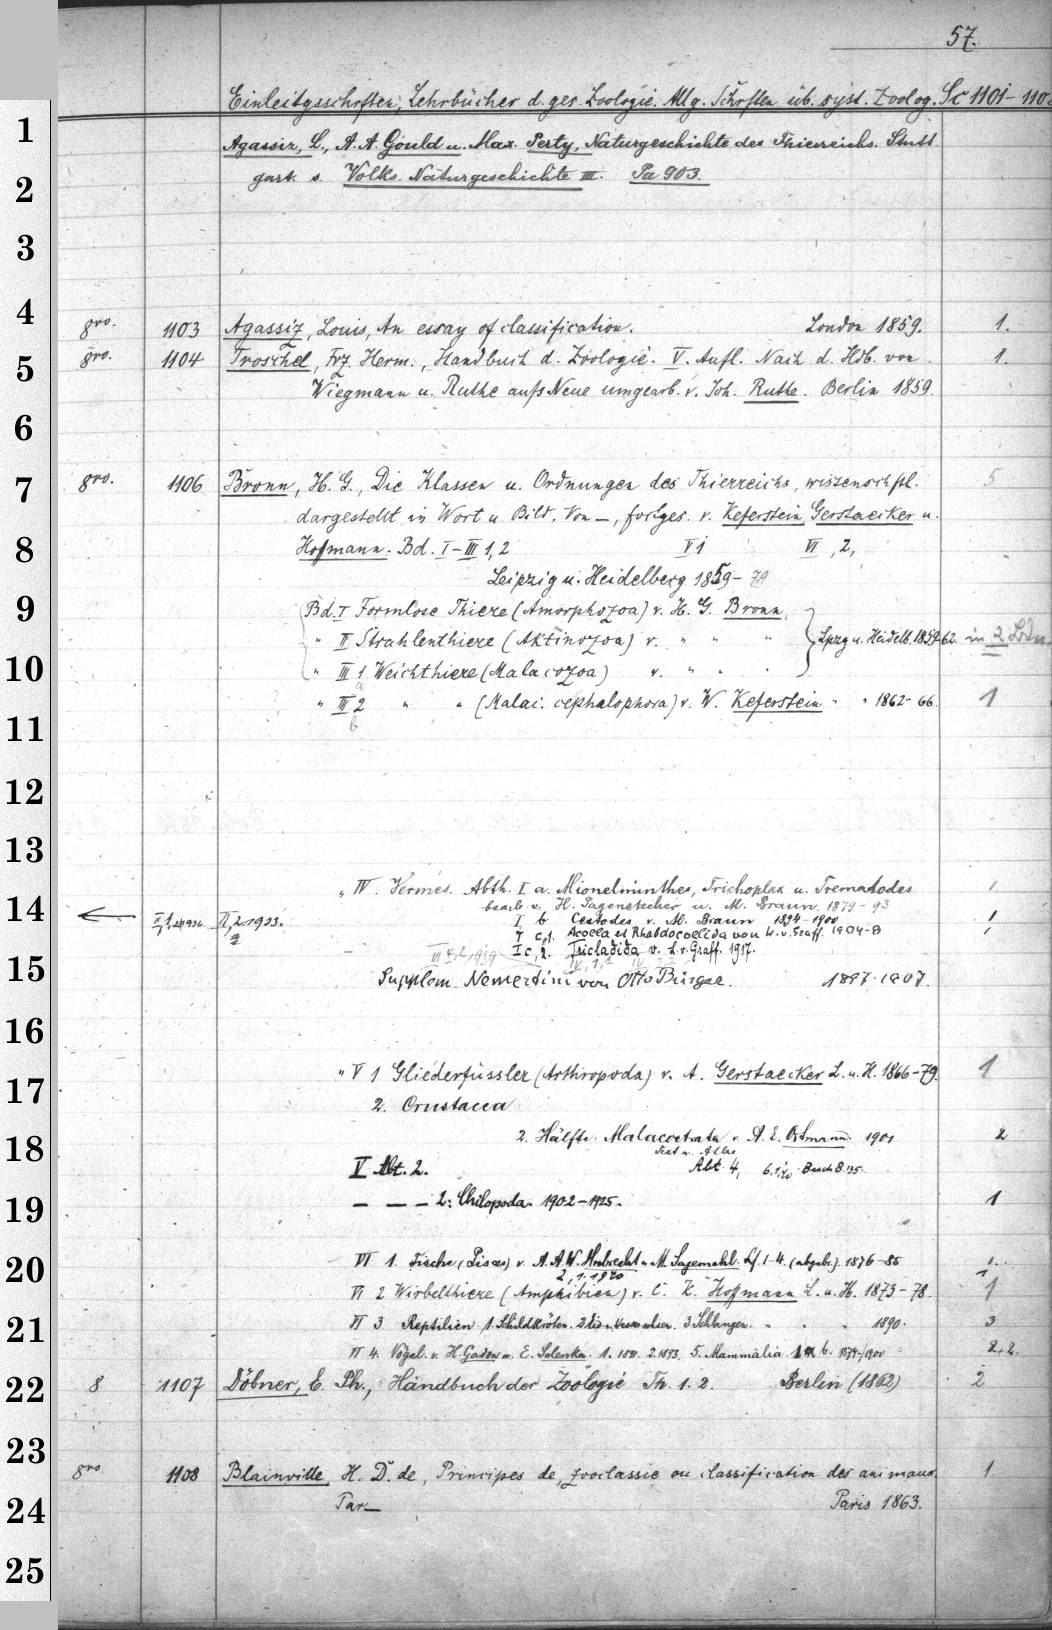 57.
Einleitgsschrften, Lehrbücher d. ges. Zoologie. Allg. Schrften üb. syst. Zoolog. Sc 1101-110
1
Agassiz, L., A. A. Gould u. Max. Perty, Naturgeschichte des Thierreichs. Stutt
2
gart. s. Volks. Naturgeschichte III. Pa 903.
3
4
8vo. 1103 Agassiz, Louis, An essay of classification. London 1859. 1.
5
8vo. 1104 Troschel, Frz. Herm., Handbuch d. Zoologie. V. Aufl. Nach d. Hdb. von 1.
Wiegmann u. Ruthe aufs Neue umgearb. v. Joh. Ruthe. Berlin 1859.
6
7
8vo. 1106 Bronn, H. G., Die Klassen u. Ordnungen des Thierreichs, wissenschftl. 5
dargestellt in Wort u. Bild. Von —, fortges. v. Keferstein, Gerstaecker u.
8
Hoffmann. Bd. I-III 1, 2 V 1 VI, 2,
Leipzig u. Heidelberg 1859-79
9
Bd. I Formlose Thiere (Amorphozoa) v. H. G. Bronn
" II Strahlenthiere (Aktinozoa) v. " " " Lpzg u. Heidelb. 1859-62. in 2 Bdn.
10
" III 1 Weichthiere (Malacozoa) v. " " "
a
" III 2 " " (Malac. cephalophora) v. W. Keferstein " " 1862-66. 1
b
11
12
13
" IV. Vermes. Abth. I a. Mionelminthes, Trichoplax u. Trematodes 1.
bearb v. H. Pagenstecher u. M. Braun. 1879-93
14
II, 2. 1923. I b Cestodes v. M. Braun 1894-1900 1
I c, 1. Acoela et Rhabdocoelida von L. v. Graff. 1904-8 1
I c, 2. Tricladida v. L. v. Graff. 1917.
15
Supplem. Nemertini von Otto Bürger. 1897-1907.
16
" V 1 Gliederfüssler (Arthropoda) v. A. Gerstaecker L. u. H. 1866-79. 1
17
2. Crustacea
2. Hälfte. Malacostraca v. A. E. Ortmann. 1901 2
18
Text u. Atlas
V Abt. 2. Abt. 4,
19
— — — 2: Chilopoda. 1902-1925. 1
20
VI 1. Fische (Pisces) v. A. A. W. Hubrecht u. M. Sagemehl. Lf. 1-4. (abgebr.). 1876-85 1.
2, 1. 1920 1
VI 2 Wirbelthiere (Amphibien) v. C. K. Hoffmann L. u. H. 1873-78. 1
21
VI 3 Reptilien 1. Schildkröten. 2. Eidechsen u. Wasserechsen. 3 Schlangen. " " " 1890. 3
VI 4. Vögel. v. H. Gadow u. E. Selenka. 1. 1891. 2. 1893. 5. Mammalia 2+2.
22
8 1107 Döbner, E. Ph., Handbuch der Zoologie Th. 1. 2. Berlin (1862) 2
23
8vo 1108 Blainville, H. D. de, Principes de zooclassie ou classification des animaux. 1
24
Par — Paris 1863.
25